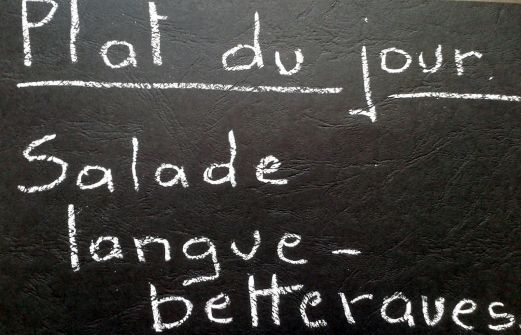 Plat du jour
Salade
langue -
betteraves